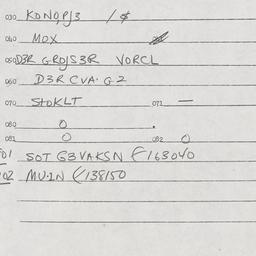 030 KDNQPJ3 / $
040 MDX
050 D3R GRDJS3R VORCL
060 D3R CVA. G2
070 StOKLT 071 —
080 0 .
081 0 082 0
101 SOT G3VAKSN (163040
102 MU-IN (138150